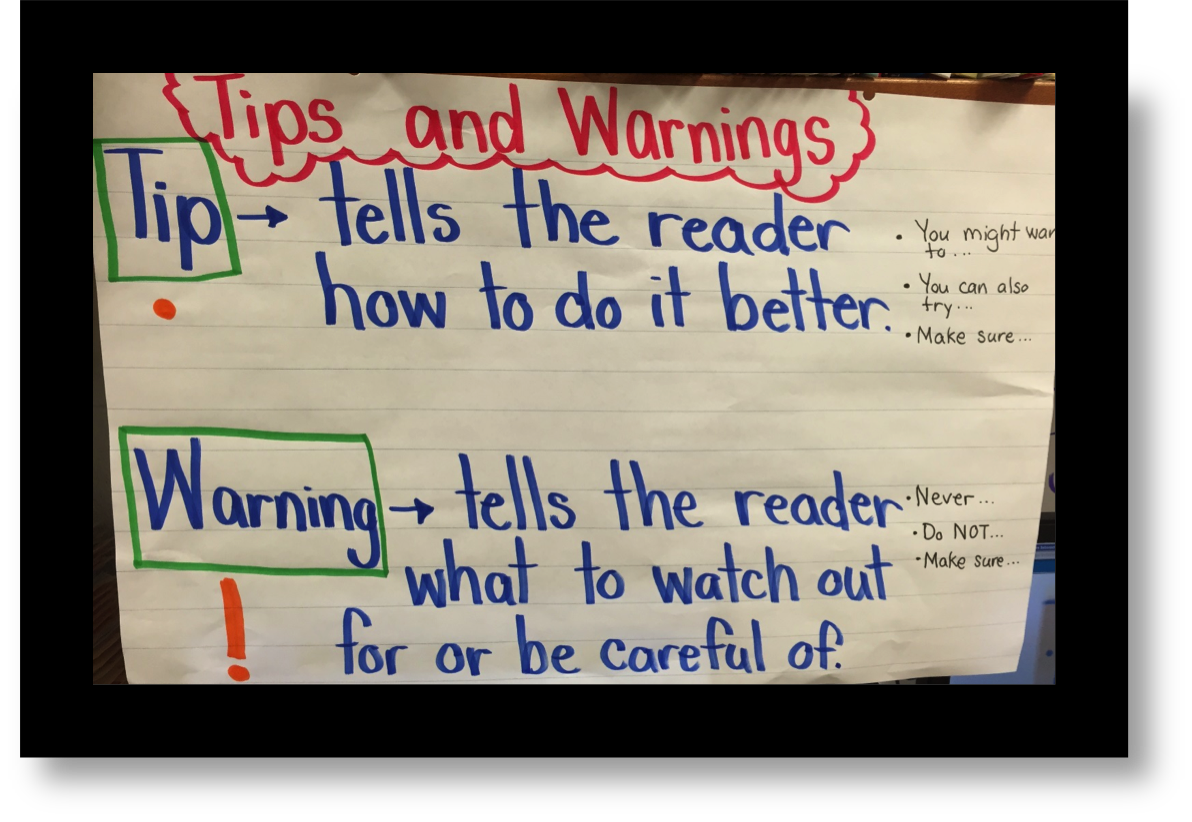 Tips and Warnings
Tip → tells the reader
how to do it better.
• You might wan
to...
• You can also
try...
• Make sure...
Warning → tells the reader
what to watch out
for or be careful of.
!
• Never...
• Do NOT...
• Make sure...